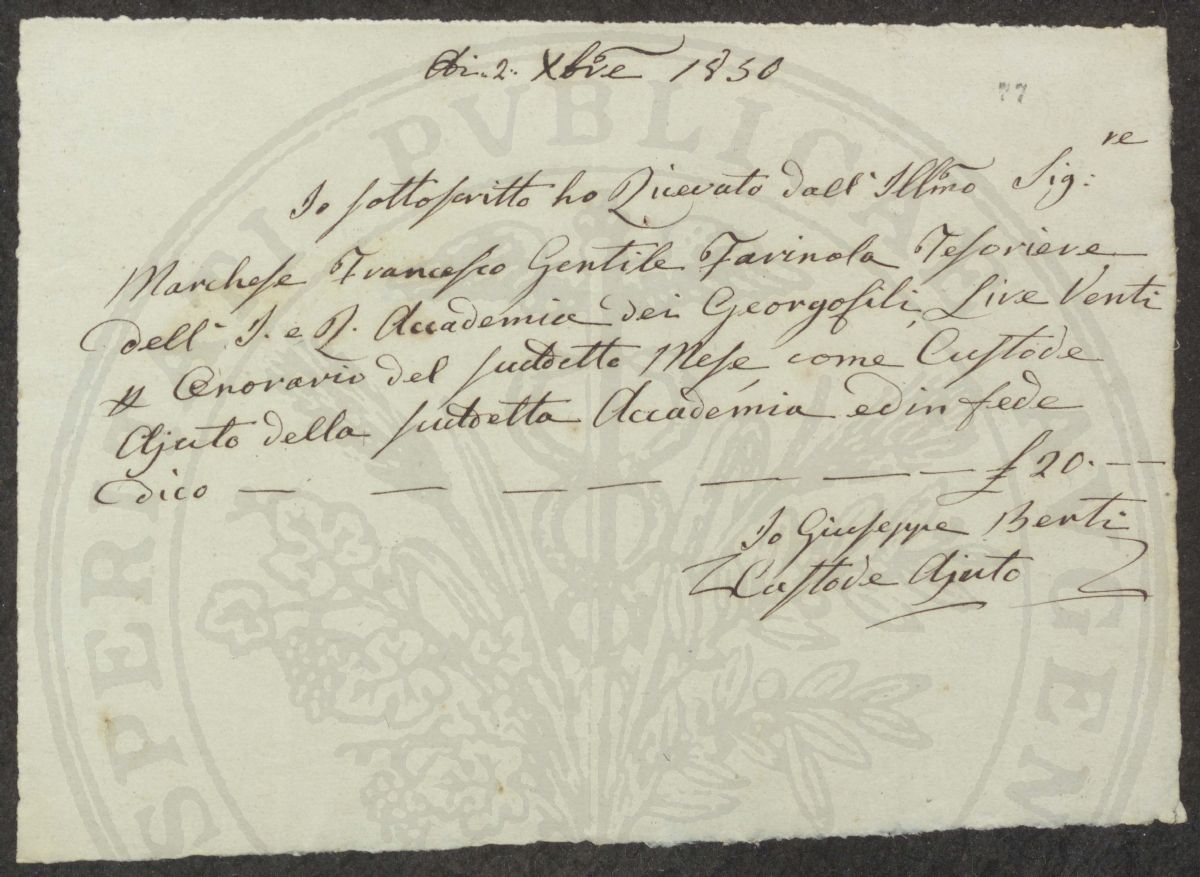 Adi.. 2.. Xbre 1830
77
Io sottoscritto ho Ricevuto dall' Illmo Sig:re
Marchese Francesco Gentile Farinola Tesoriere
dell' I. e R. Accademia dei Georgofili, Lire Venti
Onorario del suddetto Mese come Custode
Ajuto della suddetta Accademia ed in fede
dico — — — — — — — £ 20. —
Io Giuseppe Berti
Custode Ajuto
PUBLICAE